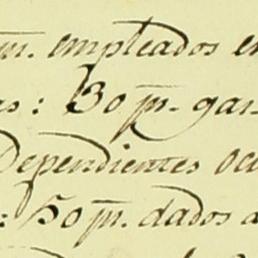 pſ. empleados en
as: 30 pſ. gas-
Dependientes oc
: 50 pſ. dados a